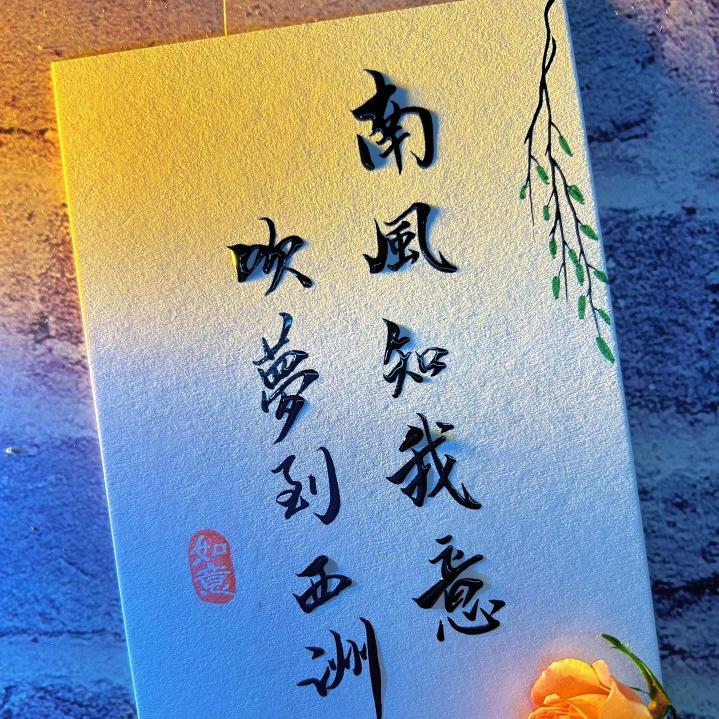 南風知我意
吹夢到西洲
如意